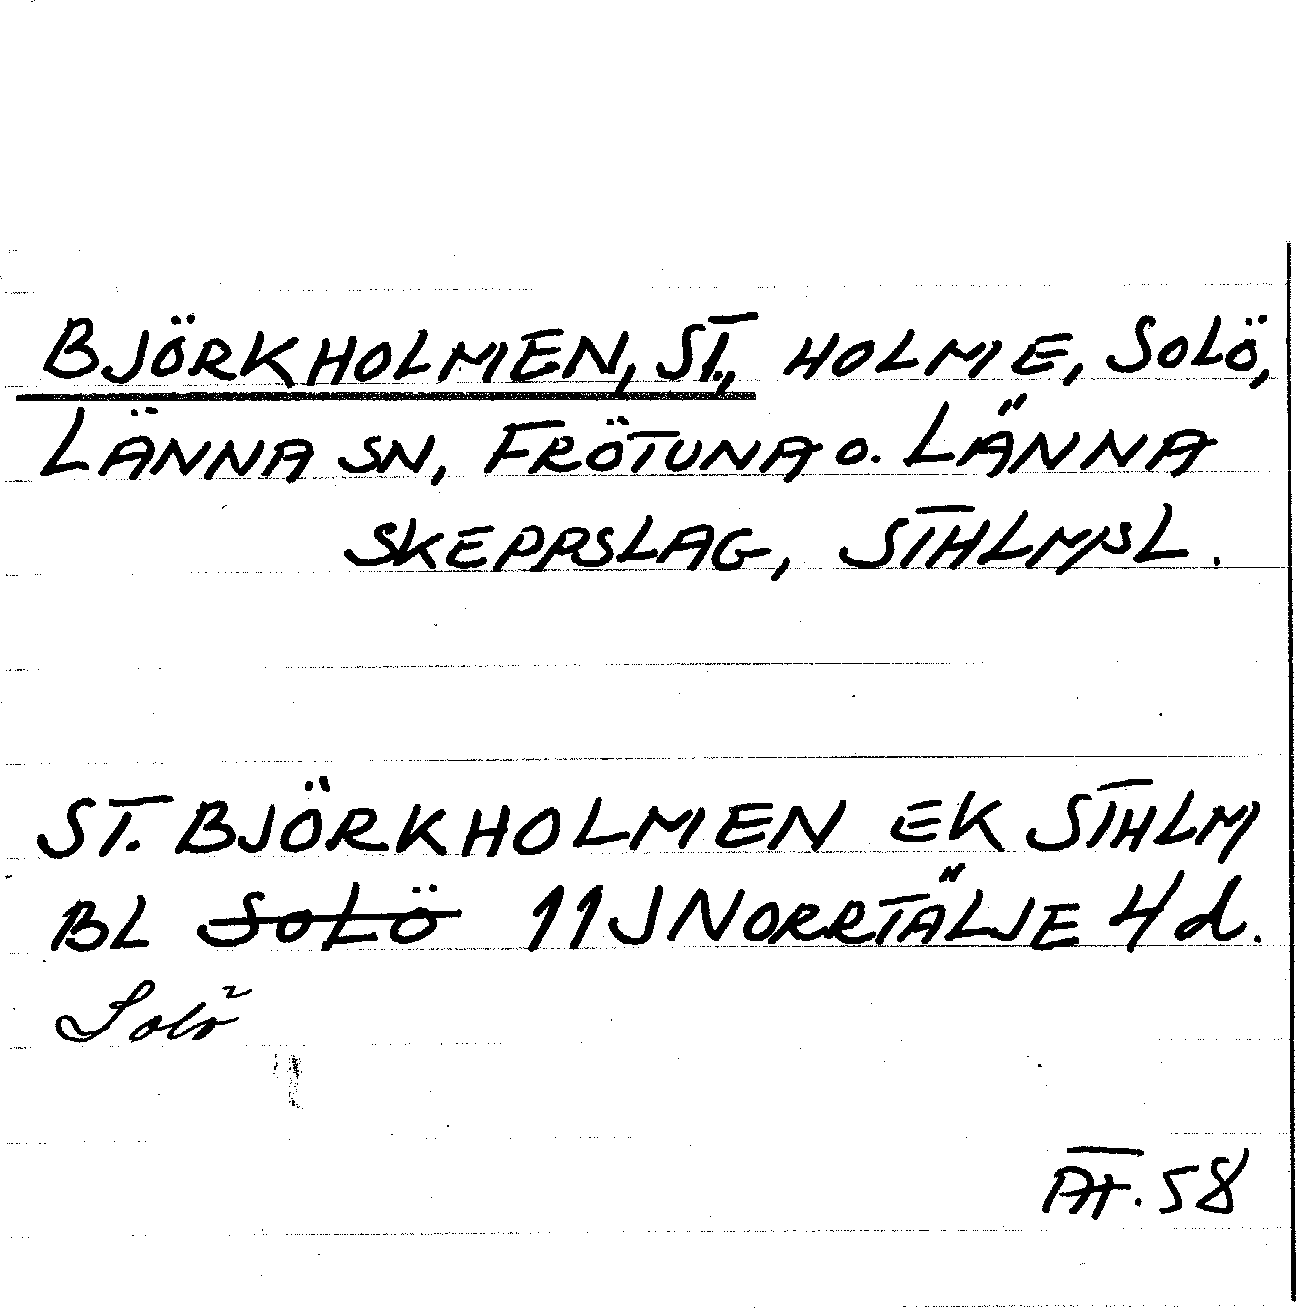 BJÖRKHOLMEN, ST., HOLME, SOLÖ,
LÄNNA SN, FRÖTUNA O. LÄNNA
SKEPPSLAG, STHLMSL.
ST. BJÖRKHOLMEN EK STHLM
BL SOLÖ 11J NORRTÄLJE 4d.
Solö
58